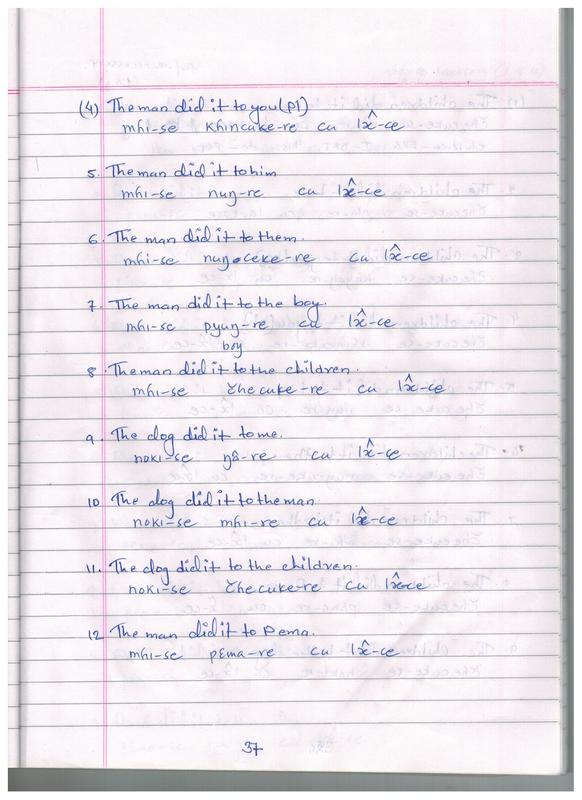 (4) The man did it to you (Pl)
mɦi-se khincuke-re cu lâ-ce
5. The man did it to him
mɦi-se nuŋ-re cu lâ-ce
6. The man did it to them.
mɦi-se nuŋoceke-re cu lâ-ce
7. The man did it to the boy.
mɦi-se pyuŋ-re cu lâ-ce
boy
8 The man did it to the children.
mɦi-se čhecuke-re cu lâ-ce
9. The dog did it to me.
noki-se ŋâ-re cu lâ-ce
10 The dog did it to the man
noki-se mɦi-re cu lâ-ce
11. The dog did it to the children.
noki-se čhecuke-re cu lâ-ce
12 The man did it to Pema.
mɦi-se pɛma-re cu lâ-ce
37